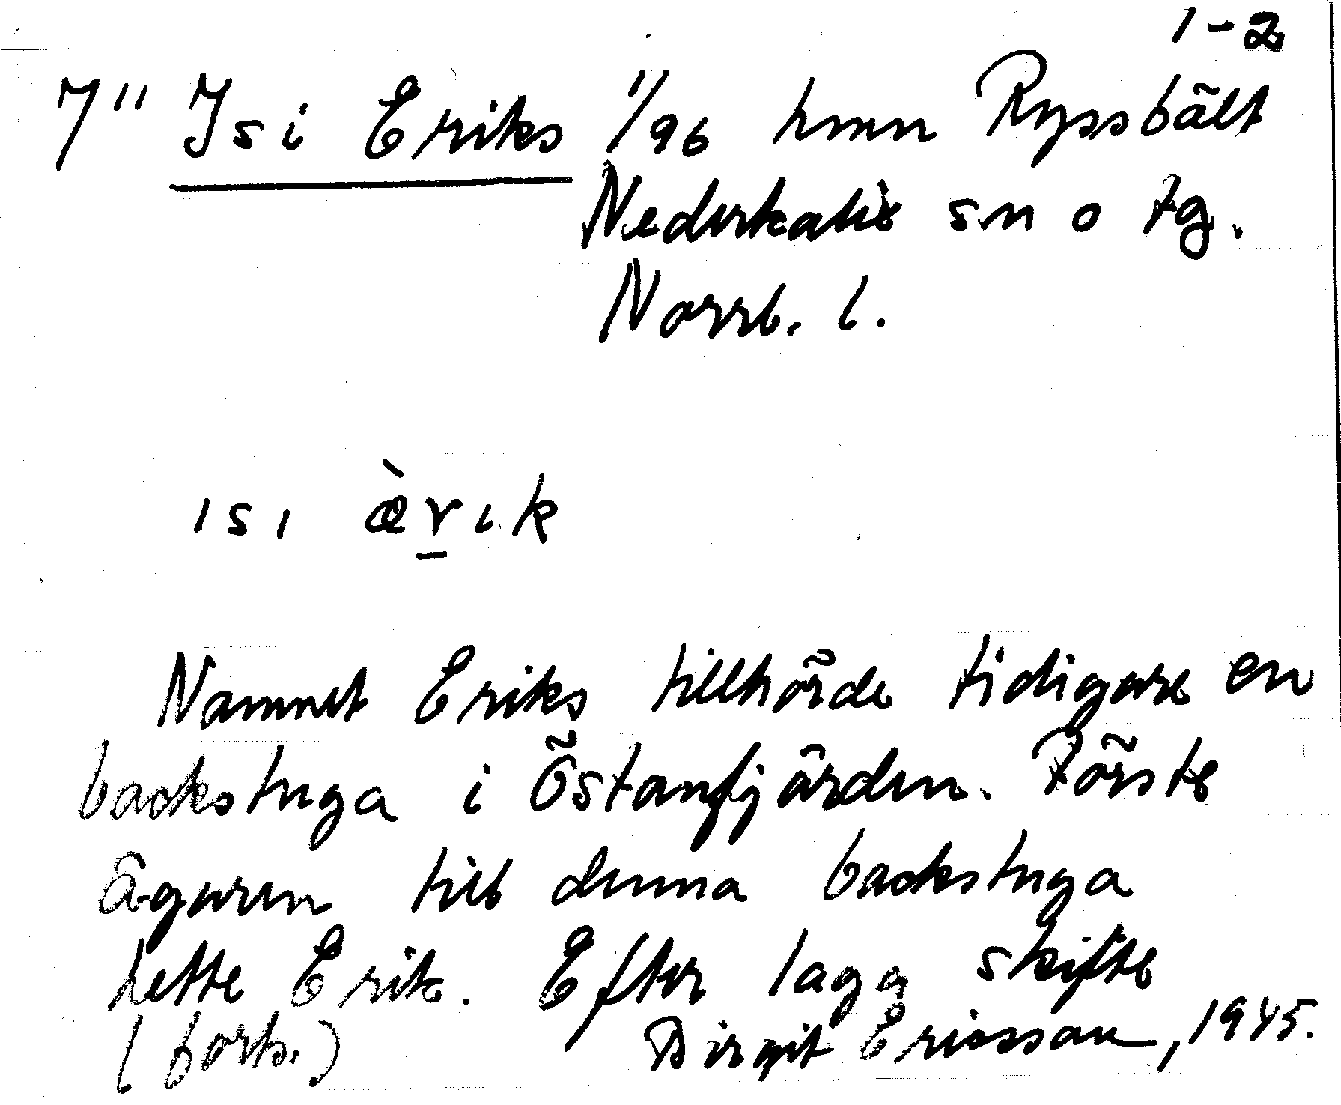 1-2
7" Isi Eriks 1/96 hmn Ryssbält
Nederkalix sn o tg.
Norrb. l.
ısı æ̀r̠ık
Namnet Eriks tillhörde tidigare en
backstuga i Östanfjärden. Förste
ägaren till denna backstuga
hette Erik. Efter laga skifte
(forts.) Birgit Ericsson, 1945.